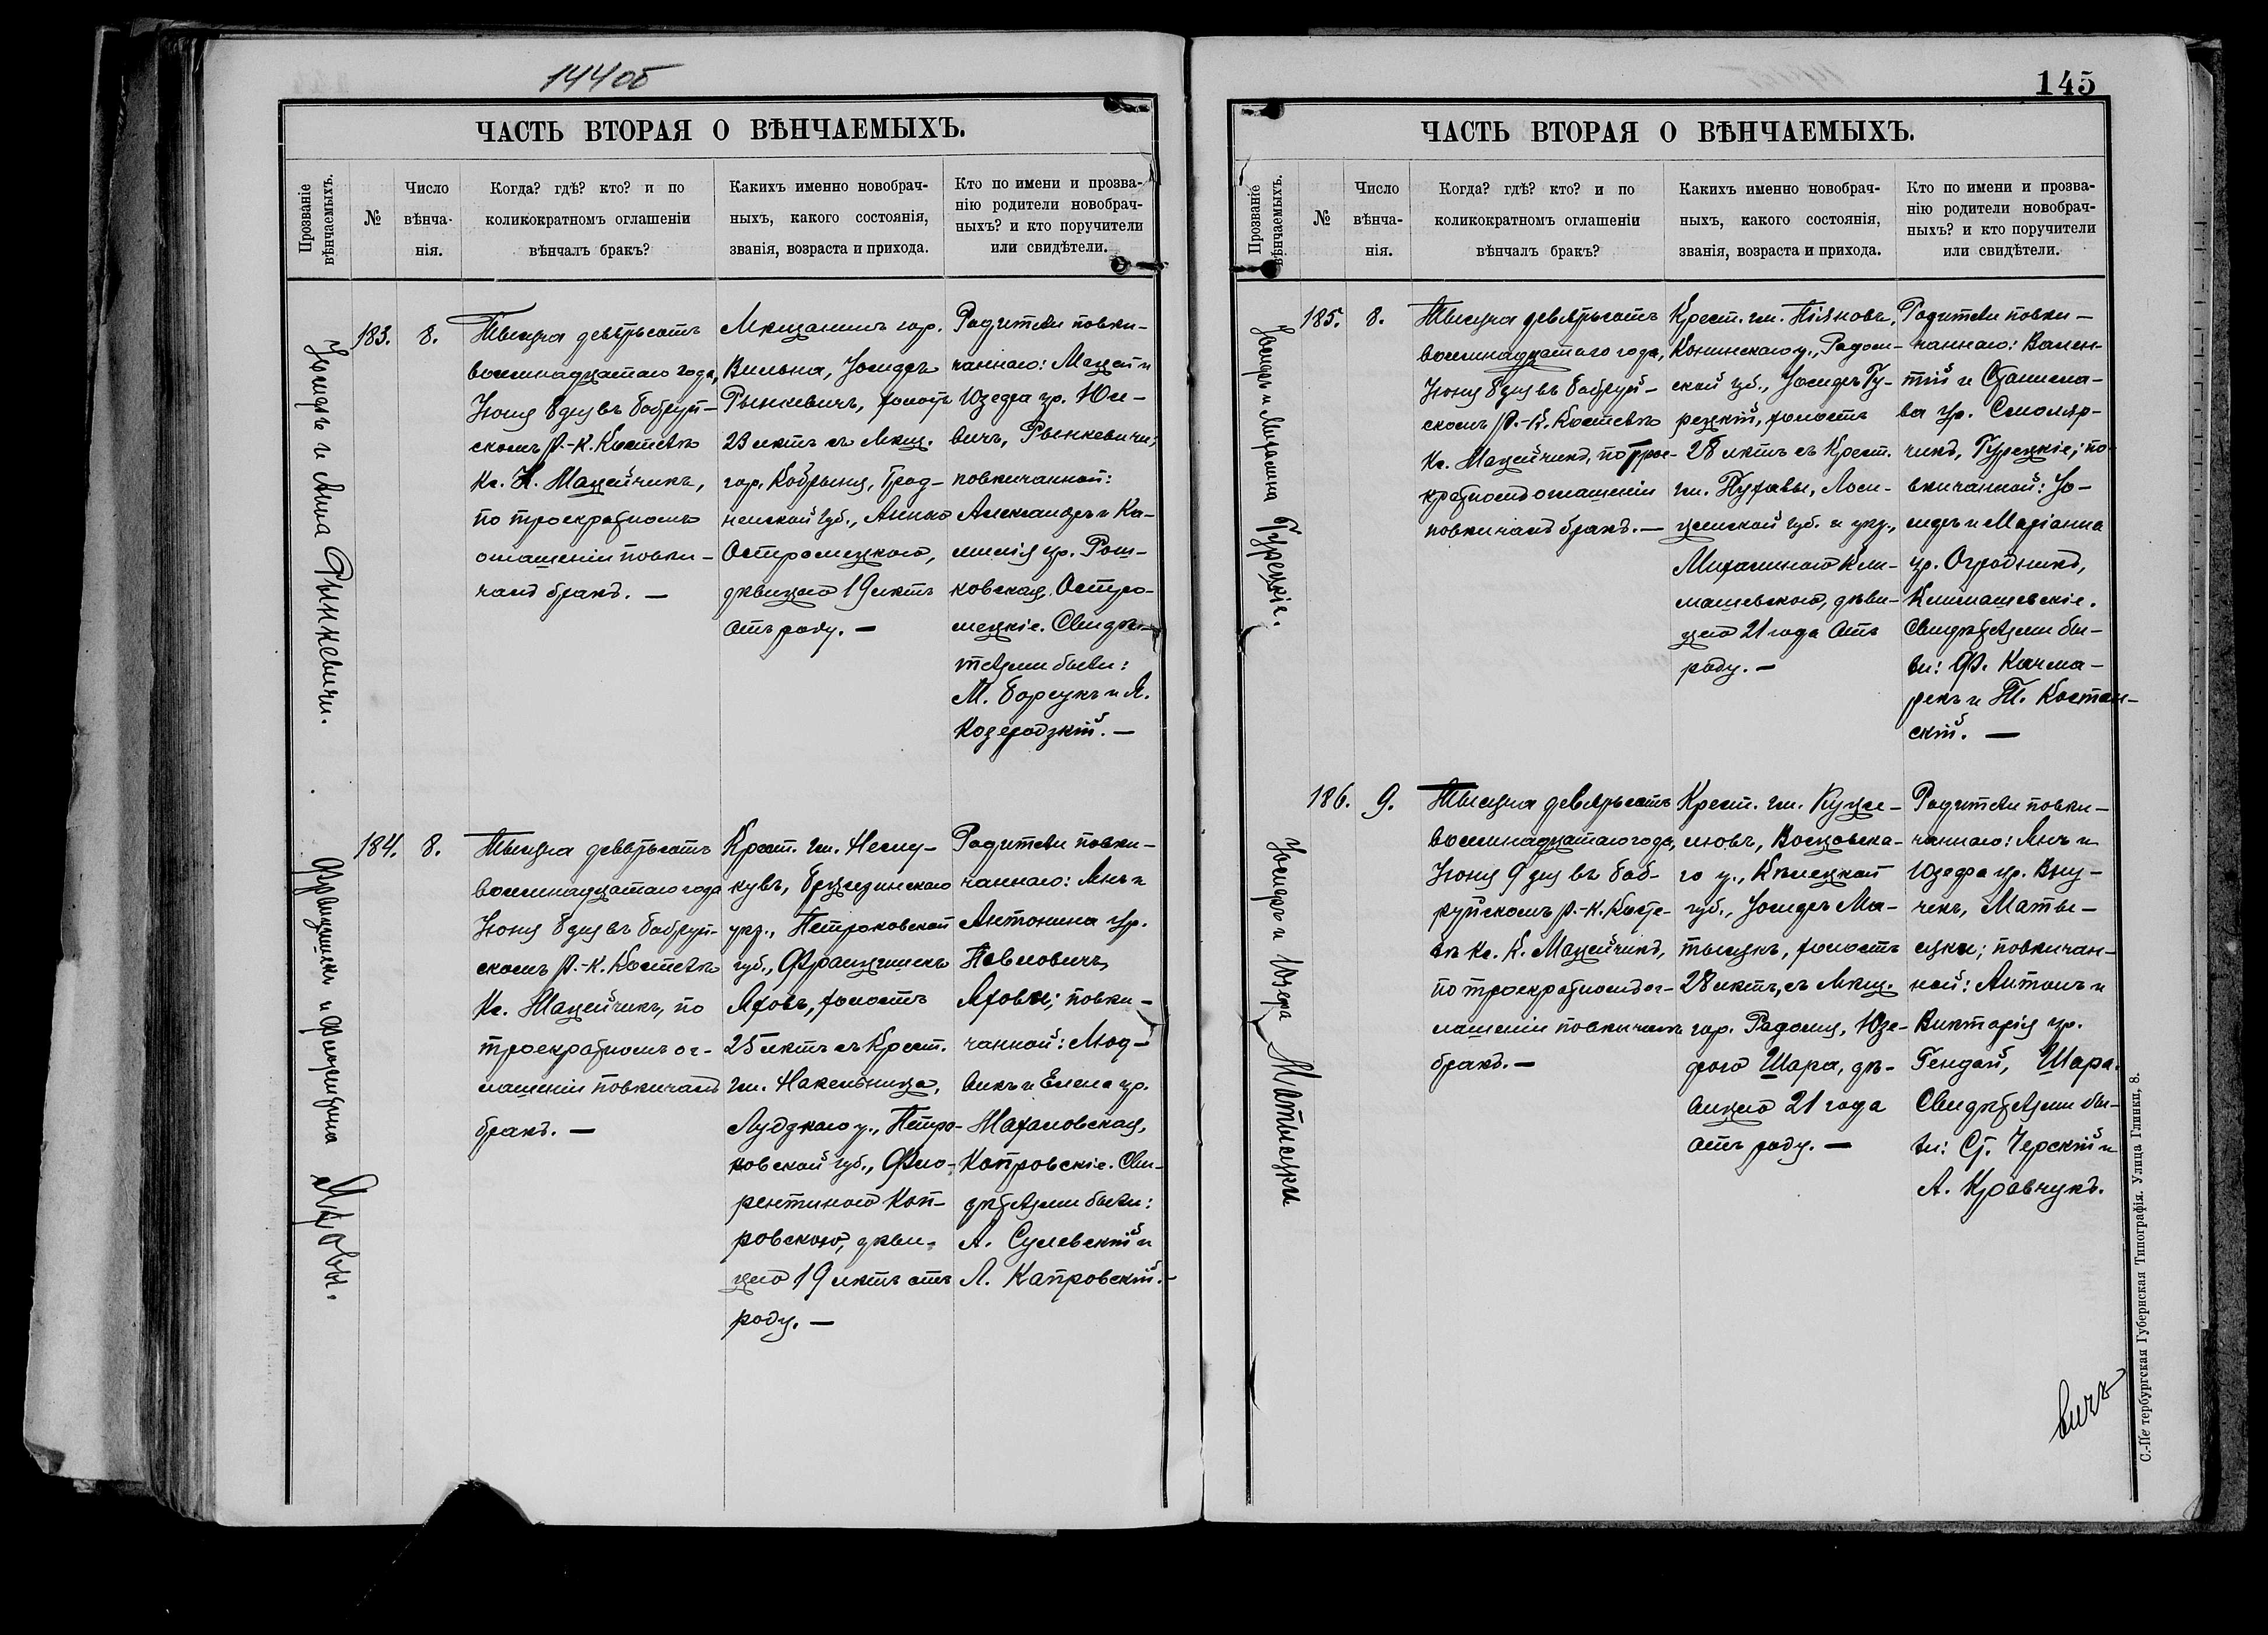 144 об
ЧАСТЬ ВТОРАЯ О ВѢНЧАЕМЫХЪ.
Прозваніе вѣнчаемыхъ.
№
Число вѣнча-нія.
Когда? гдѣ? кто? и по
коликократномъ оглашеніи
вѣнчалъ бракъ?
Какихъ именно новобрач-
ныхъ, какого состоянія,
званія, возраста и прихода.
Кто по имени и прозва-
нію родители новобрач-
ныхъ? и кто поручители
или свидѣтели.
Іосифъ и Анна Рынкевичи.
183.
8.
Тысяча девятьсотъ
восемнадцатаго года,
Іюня 8 дня въ Бобруй-
скомъ Р.-К. Костелѣ
Кс. К. Мацейчикъ,
по троекратномъ
оглашеніи повѣн-
чалъ бракъ. —
Мѣщанинъ гор.
Вильна, Іосифъ
Рынкевичъ, холостъ
23 лѣтъ съ Мѣщ.
гор. Кобрыня, Грод-
ненской губ., Анною
Остромецкою,
дѣвицею 19 лѣтъ
отъ роду. —
Родители повѣн-
чаннаго: Мацей и
Юзефа ур. Юх-
вичъ, Рынкевичи;
повѣнчанной:
Александръ и Ка-
милія ур. Рош-
ковская, Остро-
мецкіе. Свидѣ-
телями были:
М. Борсукъ и Я.
Козеродзкій. —
Францишекъ и Флорентина Яховы.
184.
8.
Тысяча девятьсотъ
восемнадцатаго года
Іюня 8 дня въ Бобруй-
скомъ Р.-К. Костелѣ
Кс. Мацейчикъ, по
троекратномъ ог-
лашеніи повѣнчалъ
бракъ. —
Крест. гм.
Брезинскаго
уѣз., Петроковской
губ., Францишекъ
Яховъ, холостъ
25 лѣтъ съ Крест.
гм. Накельница,
Лодзкаго у., Петро-
ковской губ., Фло-
рентиною Коп-
ровскою, дѣви-
цею 19 лѣтъ отъ
роду. —
Родители повѣн-
чаннаго: Янъ и
Антонина ур.
Павловичъ,
Яховы; повѣн-
чанной: Люд-
викъ и Елена ур.
Махаловская,
Копровскіе. Сви-
дѣтелями были:
А. Сулевскій и
Л. Капровскій. —
145
ЧАСТЬ ВТОРАЯ О ВѢНЧАЕМЫХЪ.
Прозваніе вѣнчаемыхъ.
№
Число вѣнча-нія.
Когда? гдѣ? кто? и по
коликократномъ оглашеніи
вѣнчалъ бракъ?
Какихъ именно новобрач-
ныхъ, какого состоянія,
званія, возраста и прихода.
Кто по имени и прозва-
нію родители новобрач-
ныхъ? и кто поручители
или свидѣтели.
Іосифъ и Михалина Гурецкіе.
185.
8.
Тысяча девятьсотъ
восемнадцатаго года,
Іюня 8 дня въ Бобруй-
скомъ Р.-К. Костелѣ
Кс. Мацейчикъ, по трое-
кратномъ оглашеніи
повѣнчалъ бракъ. —
Крест. гм. Піяновъ,
Конинскаго у., Радом-
ской губ., Іосифъ Гу-
рецкій, холостъ
28 лѣтъ съ Крест.
гм. Пухавы, Лом-
жинской губ. и уѣз.,
Михалиною Кли-
машевскою, дѣви-
цею 21 года отъ
роду. —
Родители повѣн-
чаннаго: Вален-
тій и Станисла-
ва ур. Смоляр-
чикъ, Гурецкіе; по-
вѣнчанной: Іо-
сифъ и Маріанна
ур. Огродникъ,
Климашевскіе.
Свидѣтелями бы-
ли: Ф. Качма-
рекъ и Т. Костан-
скій. —
Іосифъ и Юзефа Матысяки
186.
9.
Тысяча девятьсотъ
восемнадцатаго года,
Іюня 9 дня въ Боб-
руйскомъ Р.-К. Косте-
лѣ Кс. К. Мацейчикъ,
по троекратномъ ог-
лашеніи повѣнчалъ
бракъ. —
Крест. гм.
го у., Кѣлецкой
губ., Іосифъ Ма-
тысякъ, холостъ
28 лѣтъ, съ Мѣщ.
гор. Радома, Юзе-
фою Шара, дѣ-
вицею 21 года
отъ роду. —
Родители повѣн-
чаннаго: Янъ и
Юзефа ур. Вну-
чекъ, Маты-
сяки; повѣнчан-
ной: Антонъ и
Викторія ур.
Гендай, Шара.
Свидѣтелями бы-
ли: Ст. Черскій и
А. Кравчукъ.
вичъ
С.-Петербургская Губернская Типографія. Улица Глинки, 8.